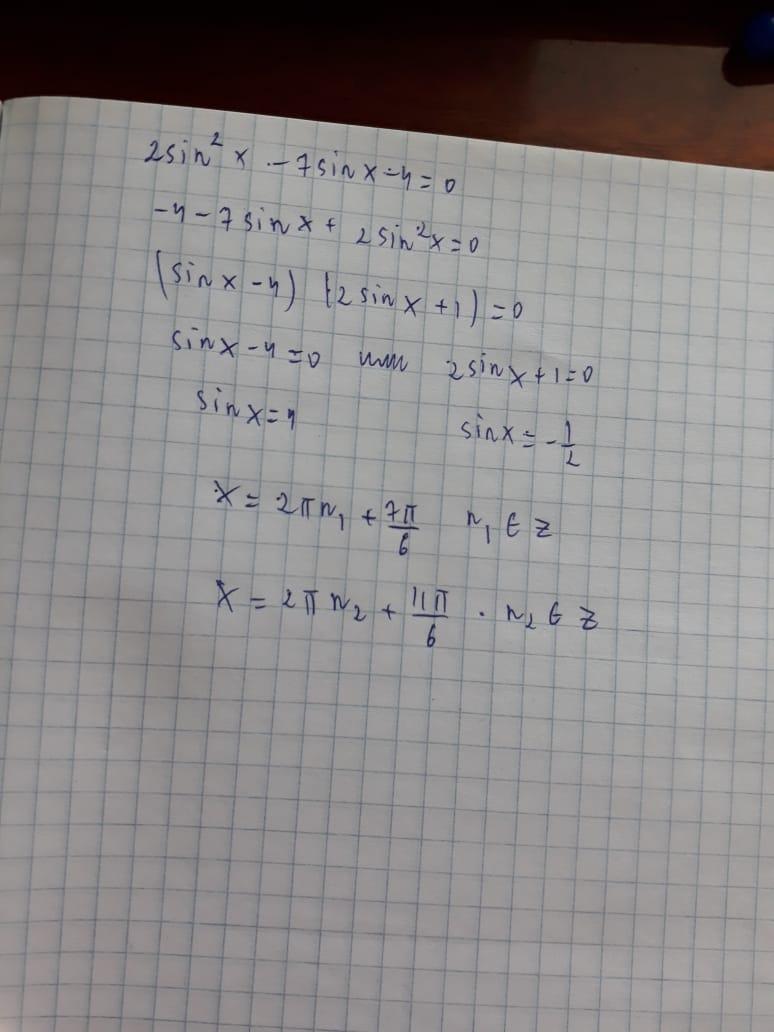 2sin² x - 7sin x - 4 = 0
-4 - 7 sin x + 2 sin² x = 0
(sin x - 4) (2 sin x + 1) = 0
sin x - 4 = 0 или 2 sin x + 1 = 0
sin x = 4 sin x = -1/2
x = 2πn₁ + 7π/6 n₁ ∈ z
x = 2πn₂ + 11π/6 · n₂ ∈ z